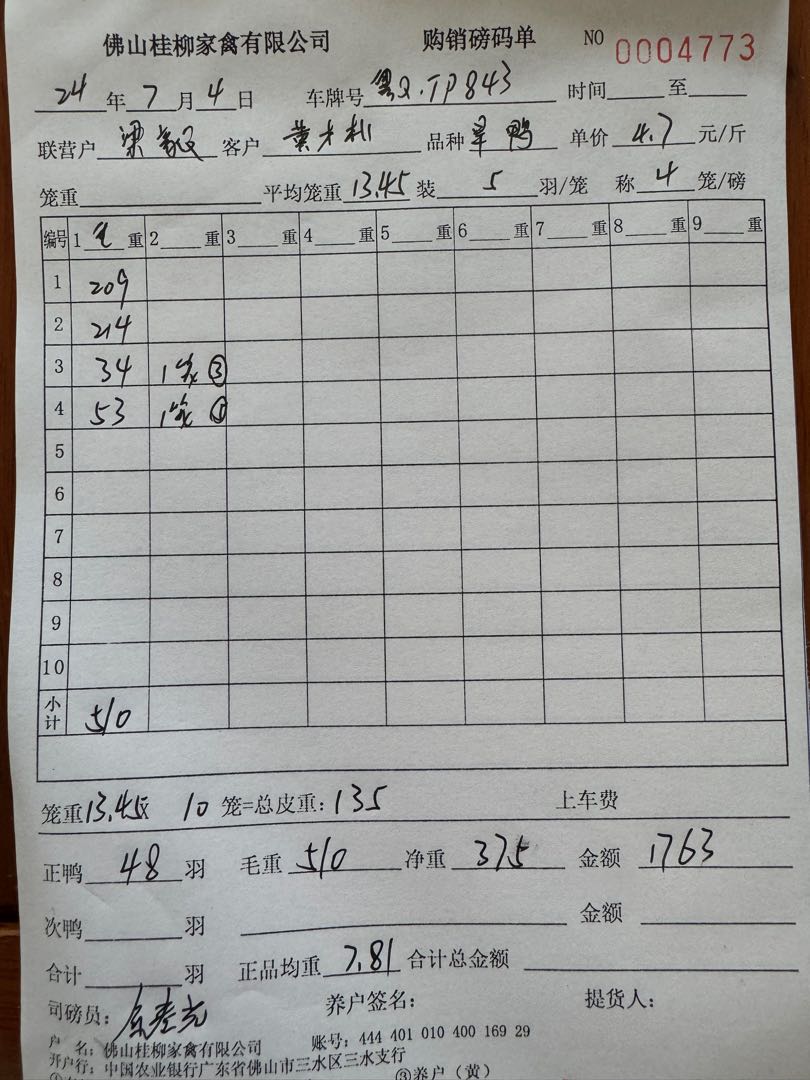 佛山桂柳家禽有限公司 购销磅码单 NO 0004773
24年7月4日 车牌号 粤Q.TP843 时间 至
联营户 梁 客户 黄 品种 旱鸭 单价 4.7 元/斤
笼重 平均笼重 13.45 装 5 羽/笼 称 4 笼/磅
编号 1 毛 重 2 重 3 重 4 重 5 重 6 重 7 重 8 重 9 重
1 209
2 214
3 34 1笼③
4 53 1笼⑤
5
6
7
8
9
10
小计 510
笼重13.45x 10 笼=总皮重:135 上车费
正鸭 48 羽 毛重 510 净重 375 金额 1763
次鸭 羽 金额
合计 羽 正品均重 7.81 合计总金额
司磅员: 养户签名: 提货人:
户 名:佛山桂柳家禽有限公司 账号:444 401 010 400 169 29
开户行:中国农业银行广东省佛山市三水区三水支行
③养户(黄)